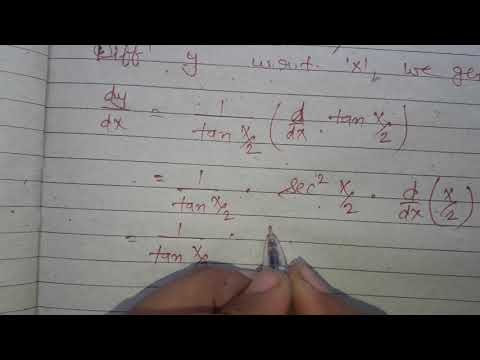 Diff y w.r.t. 'x', we get
dy/dx = 1/tan x/2 (d/dx . tan x/2)
= 1/tan x/2 . sec² x/2 . d/dx (x/2)
= 1/tan x/2 .